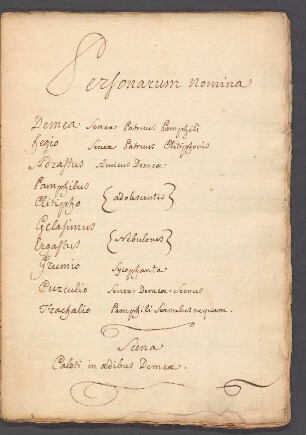 Personarum Nomina
Demea Senex Patruus Pamphili
Hegio Senex Patruus Clitiphonis
Adrastus Amicus Demeæ
Pamphilus
Clitipho {adolescentes}
Gelasimus
Ergastus {Nebulones}
Grumio Sycophanta
Curculio Senex Demeæ Servus
Trachalio Pamphili Servulus nequam.
Scena
Caleti in ædibus Demeæ.